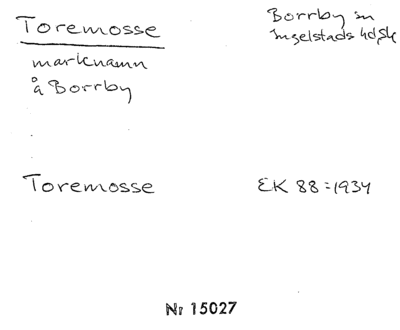 Toremosse
Borrby sn
Ingelstads hd, Sk
marknamn
å Borrby
Toremosse
EK 88 = 1934
Nr 15027